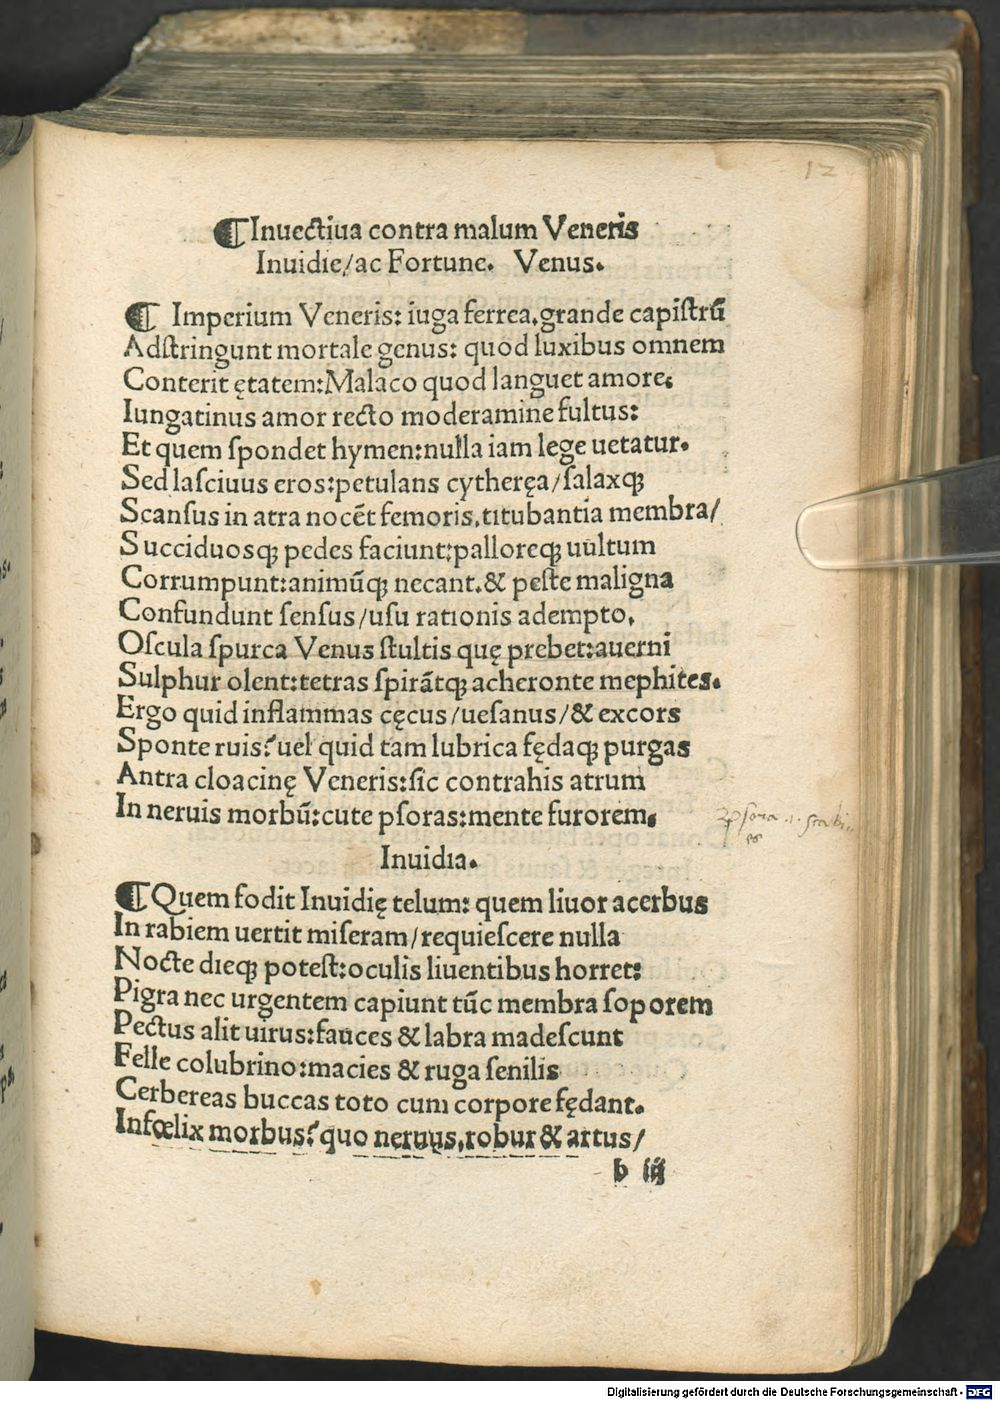 12
¶ Inuectiua contra malum Veneris
Inuidie/ac Fortune. Venus.
¶ Imperium Veneris: iuga ferrea,grande capiſtrũ
Adſtringunt mortale genus: quod luxibus omnem
Conterit ętatem:Malaco quod languet amore:
Iungatinus amor recto moderamine fultus:
Et quem ſpondet hymen:nulla iam lege uetatur.
Sed laſciuus eros:petulans cytheręa/ſalaxqꝫ
Scanſus in atra nocẽt femoris,titubantia membra/
Succiduosqꝫ pedes faciunt:palloreqꝫ uultum
Corrumpunt:animũqꝫ necant.& peſte maligna
Confundunt ſenſus/uſu rationis adempto,
Oſcula ſpurca Venus ſtultis quę prebet:auerni
Sulphur olent:tetras ſpirãtqꝫ acheronte mephites.
Ergo quid inflammas cęcus/ueſanus/& excors
Sponte ruis? uel quid tam lubrica fędaqꝫ purgas
Antra cloacinę Veneris:ſic contrahis atrum
In neruis morbũ:cute pſoras:mente furorem,
pſora .i. scabi
es
Inuidia.
¶ Quem fodit Inuidię telum: quem liuor acerbus
In rabiem uertit miſeram/requieſcere nulla
Nocte dieqꝫ poteſt:oculis liuentibus horret:
Pigra nec urgentem capiunt tũc membra ſoporem
Pectus alit uirus:fauces & labra madeſcunt
Felle colubrino:macies & ruga ſenilis
Cerbereas buccas toto cum corpore fędant.
Infœlix morbus? quo neruus,robur & artus/
b iij
Digitalisierung gefördert durch die Deutsche Forschungsgemeinschaft - DFG